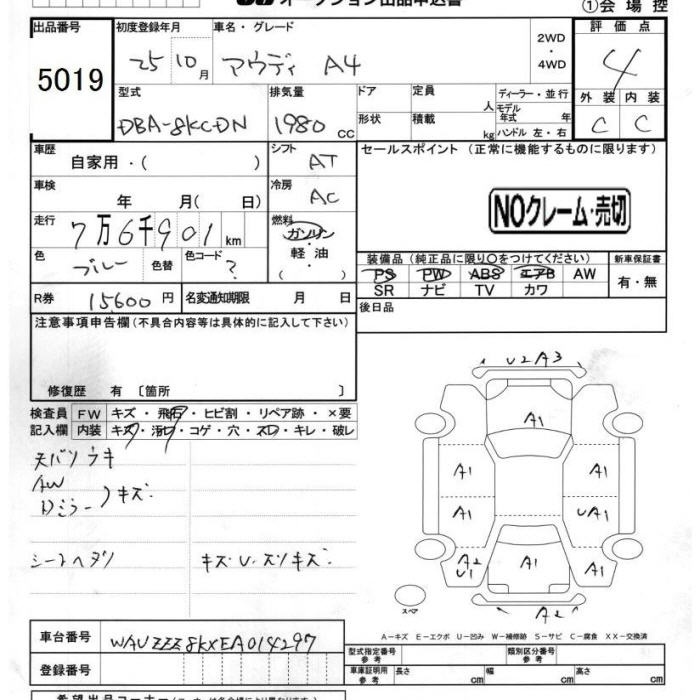 オークション出品申込書
①会場控
出品番号 5019
初度登録年月 25 10月
車名・グレード アウディ A4
2WD・4WD
評価点 4
外装 C 内装 C
型式 DBA-8KCDN
排気量 1980 cc
ドア
形状
定員 人
積載 kg
ディーラー・並行
モデル年式 年
ハンドル 左・右
車歴 自家用・( )
シフト AT
セールスポイント (正常に機能するものに限ります)
NOクレーム・売切
車検 年 月( 日)
冷房 AC
走行 7万6千901 km
燃料 ガソリン・軽油 ( )
色 ブルー 色替 色コード ?
装備品 (純正品に限り〇をつけてください)
PS PW ABS エアB AW
SR ナビ TV カワ
新車保証書 有・無
R券 15600円
名変通知期限 月 日
後日品
注意事項申告欄 (不具合内容等は具体的に記入して下さい)
修復歴 有 〔箇所 〕
検査員記入欄
FW キズ・飛石・ヒビ割・リペア跡・×要
内装 キズ・汚レ・コゲ・穴・スレ・キレ・破レ
天バリウキ
AW
Dミラー
キズ
シートヘタリ
キズU.スリキズ
U2A3
A1
A1 A1
A1 UA1
A2 U1 A1 A1
A2
スペア
A-キズ E-エクボ U-凹み W-補修跡 S-サビ C-腐食 XX-交換済
車台番号 WAUZZZ8KXEA014297
登録番号
型式指定番号 参考
類別区分番号 参考
車庫証明用 参考 長さ cm 幅 cm 高さ cm
希望出品コーナー